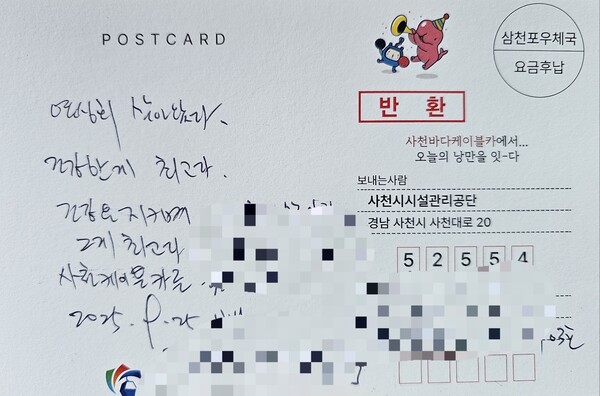 POSTCARD
삼천포우체국
요금후납
반 환
사천바다케이블카에서...
오늘의 낭만을 잇-다
보내는사람
사천시시설관리공단
경남 사천시 사천대로 20
5 2 5 5 4
열심히 살아왔다.
건강한게 최고다.
건강을 지키며
그게 최고다
사천케이블카를
2025. 9. 25